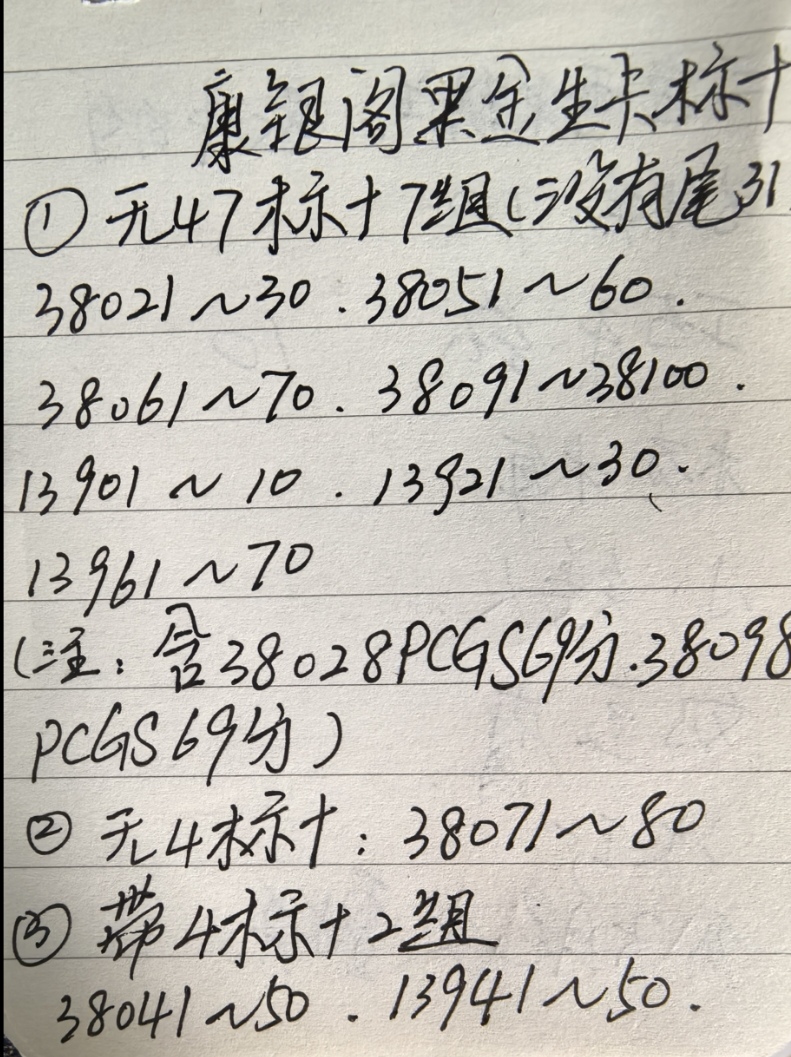 康银阁黑金生卡标十
①无47标十7组(没有尾31
38021~30.38051~60.
38061~70.38091~38100.
13901~10.13921~30.
13961~70
(注:含38028PCGS69分.38098
PCGS69分)
②无4标十:38071~80
③带4标十2组
38041~50.13941~50.